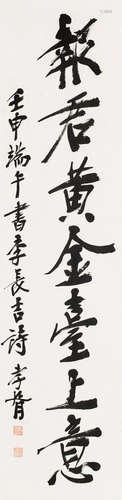 報君黃金臺上意
壬申端午書李長吉詩 孝胥